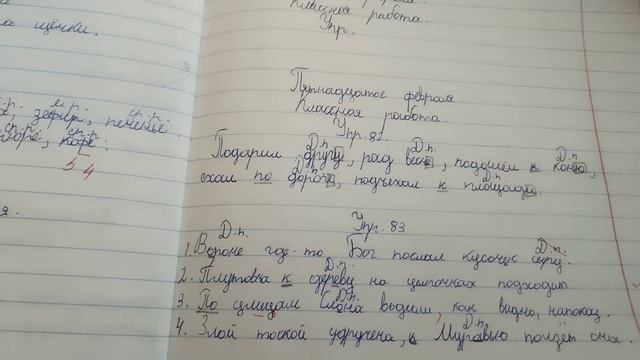 Классная работа.
а щёчки.
Упр.
Пятнадцатое февраля.
Классная работа.
Упр. 82.
зефир, печенье.
кофе.
5 4
Д.п. Д.п. Д.п.
Подарим другу, рад весне, подойдём к коню,
Д.п. Д.п.
ехал по дороге, подъехал к площади.
я.
Упр. 83
Д.п. Д.п.
1. Вороне где-то Бог послал кусочек сыру.
Д.п.
2. Плутовка к дереву на цыпочках подходит.
Д.п.
3. По улицам Слона водили, как видно, напоказ.
Д.п.
4. Злой тоской удручена, к Муравью ползёт она.